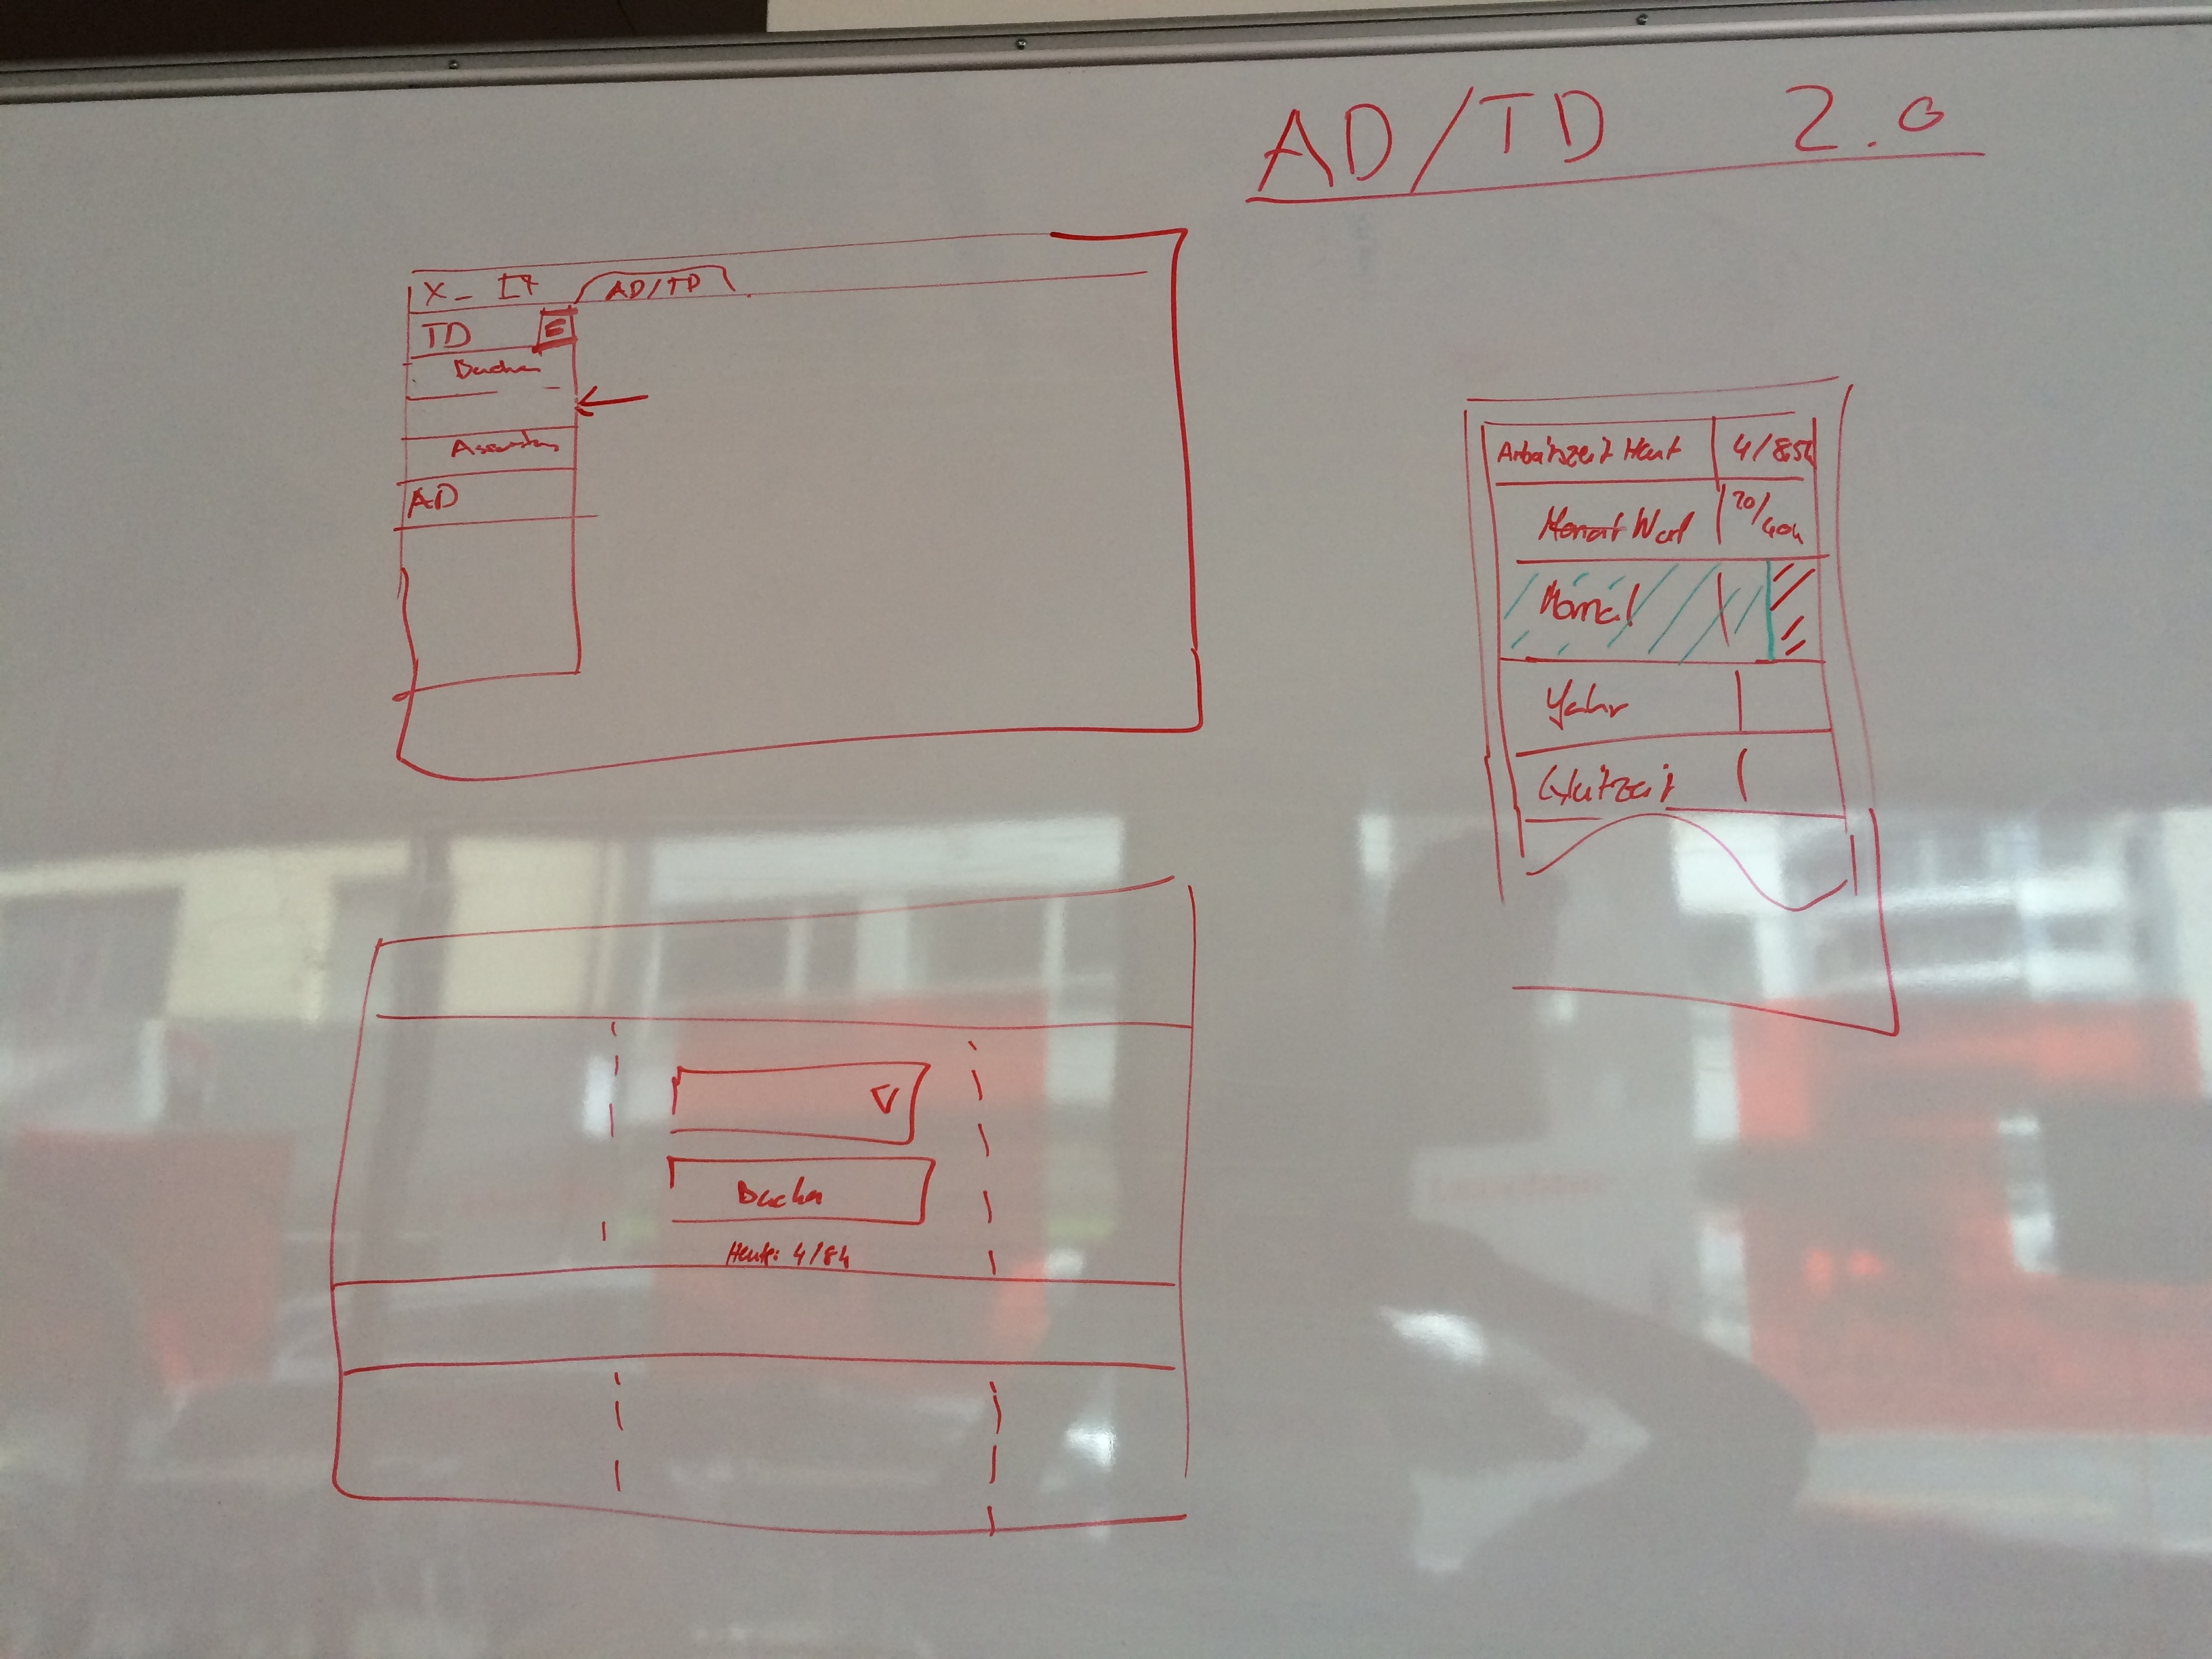 AD/TD 2.0
AD/TD
TD E
Buchen
AD
Arbeitszeit Heut 4/8,5h
Monat Woch 20/40h
Monat
Jahr
Gleitzeit
Buchen
Heute: 4/8h